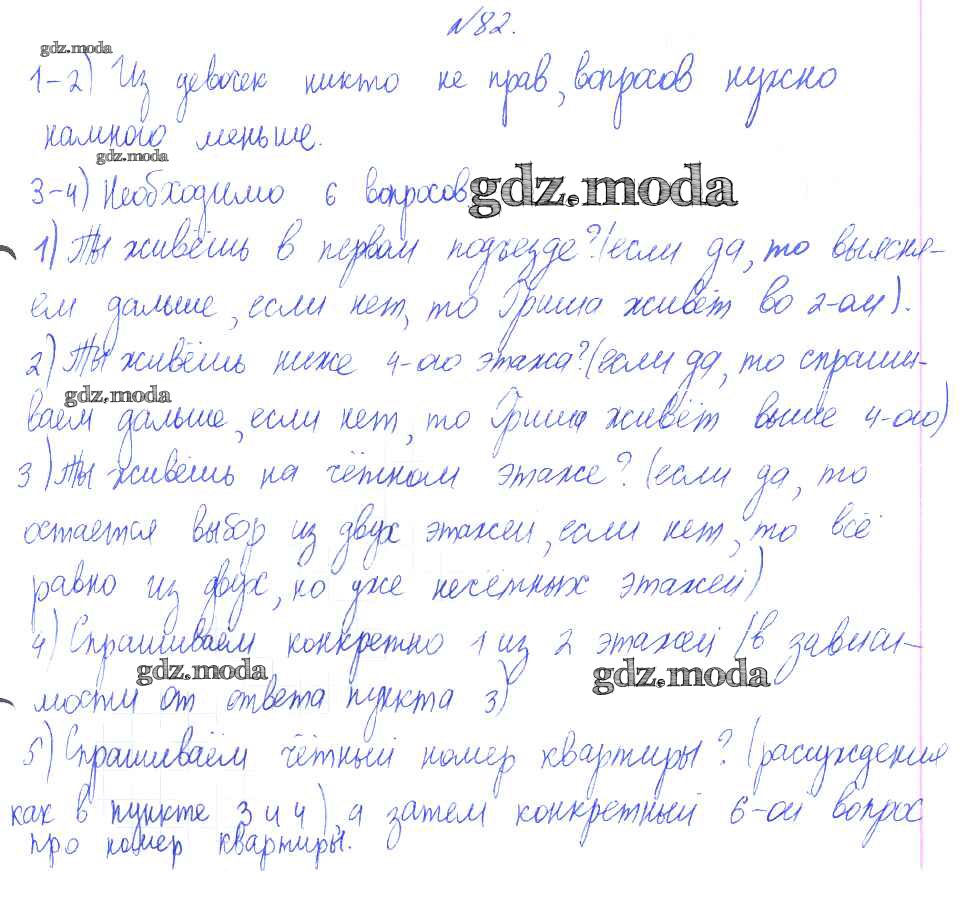 №82.
gdz.moda
1-2) Из девочек никто не прав, вопросов нужно
намного меньше.
gdz.moda
3-4) Необходимо 6 вопросов
gdz.moda
1) Ты живёшь в первом подъезде? (если да, то выясня-
ем дальше, если нет, то Гриша живёт во 2-ом).
2) Ты живёшь ниже 4-ого этажа? (если да, то спраши-
gdz.moda
ваем дальше, если нет, то Гриша живёт выше 4-ого)
3) Ты живёшь на чётном этаже? (если да, то
остаётся выбор из двух этажей, если нет, то всё
равно из двух, но уже несчётных этажей)
4) Спрашиваем конкретно 1 из 2 этажей (в зависи-
gdz.moda
gdz.moda
мости от ответа пункта 3)
5) Спрашиваем чётный номер квартиры? (рассуждения
как в пункте 3 и 4), а затем конкретный 6-ой вопрос
про номер квартиры.